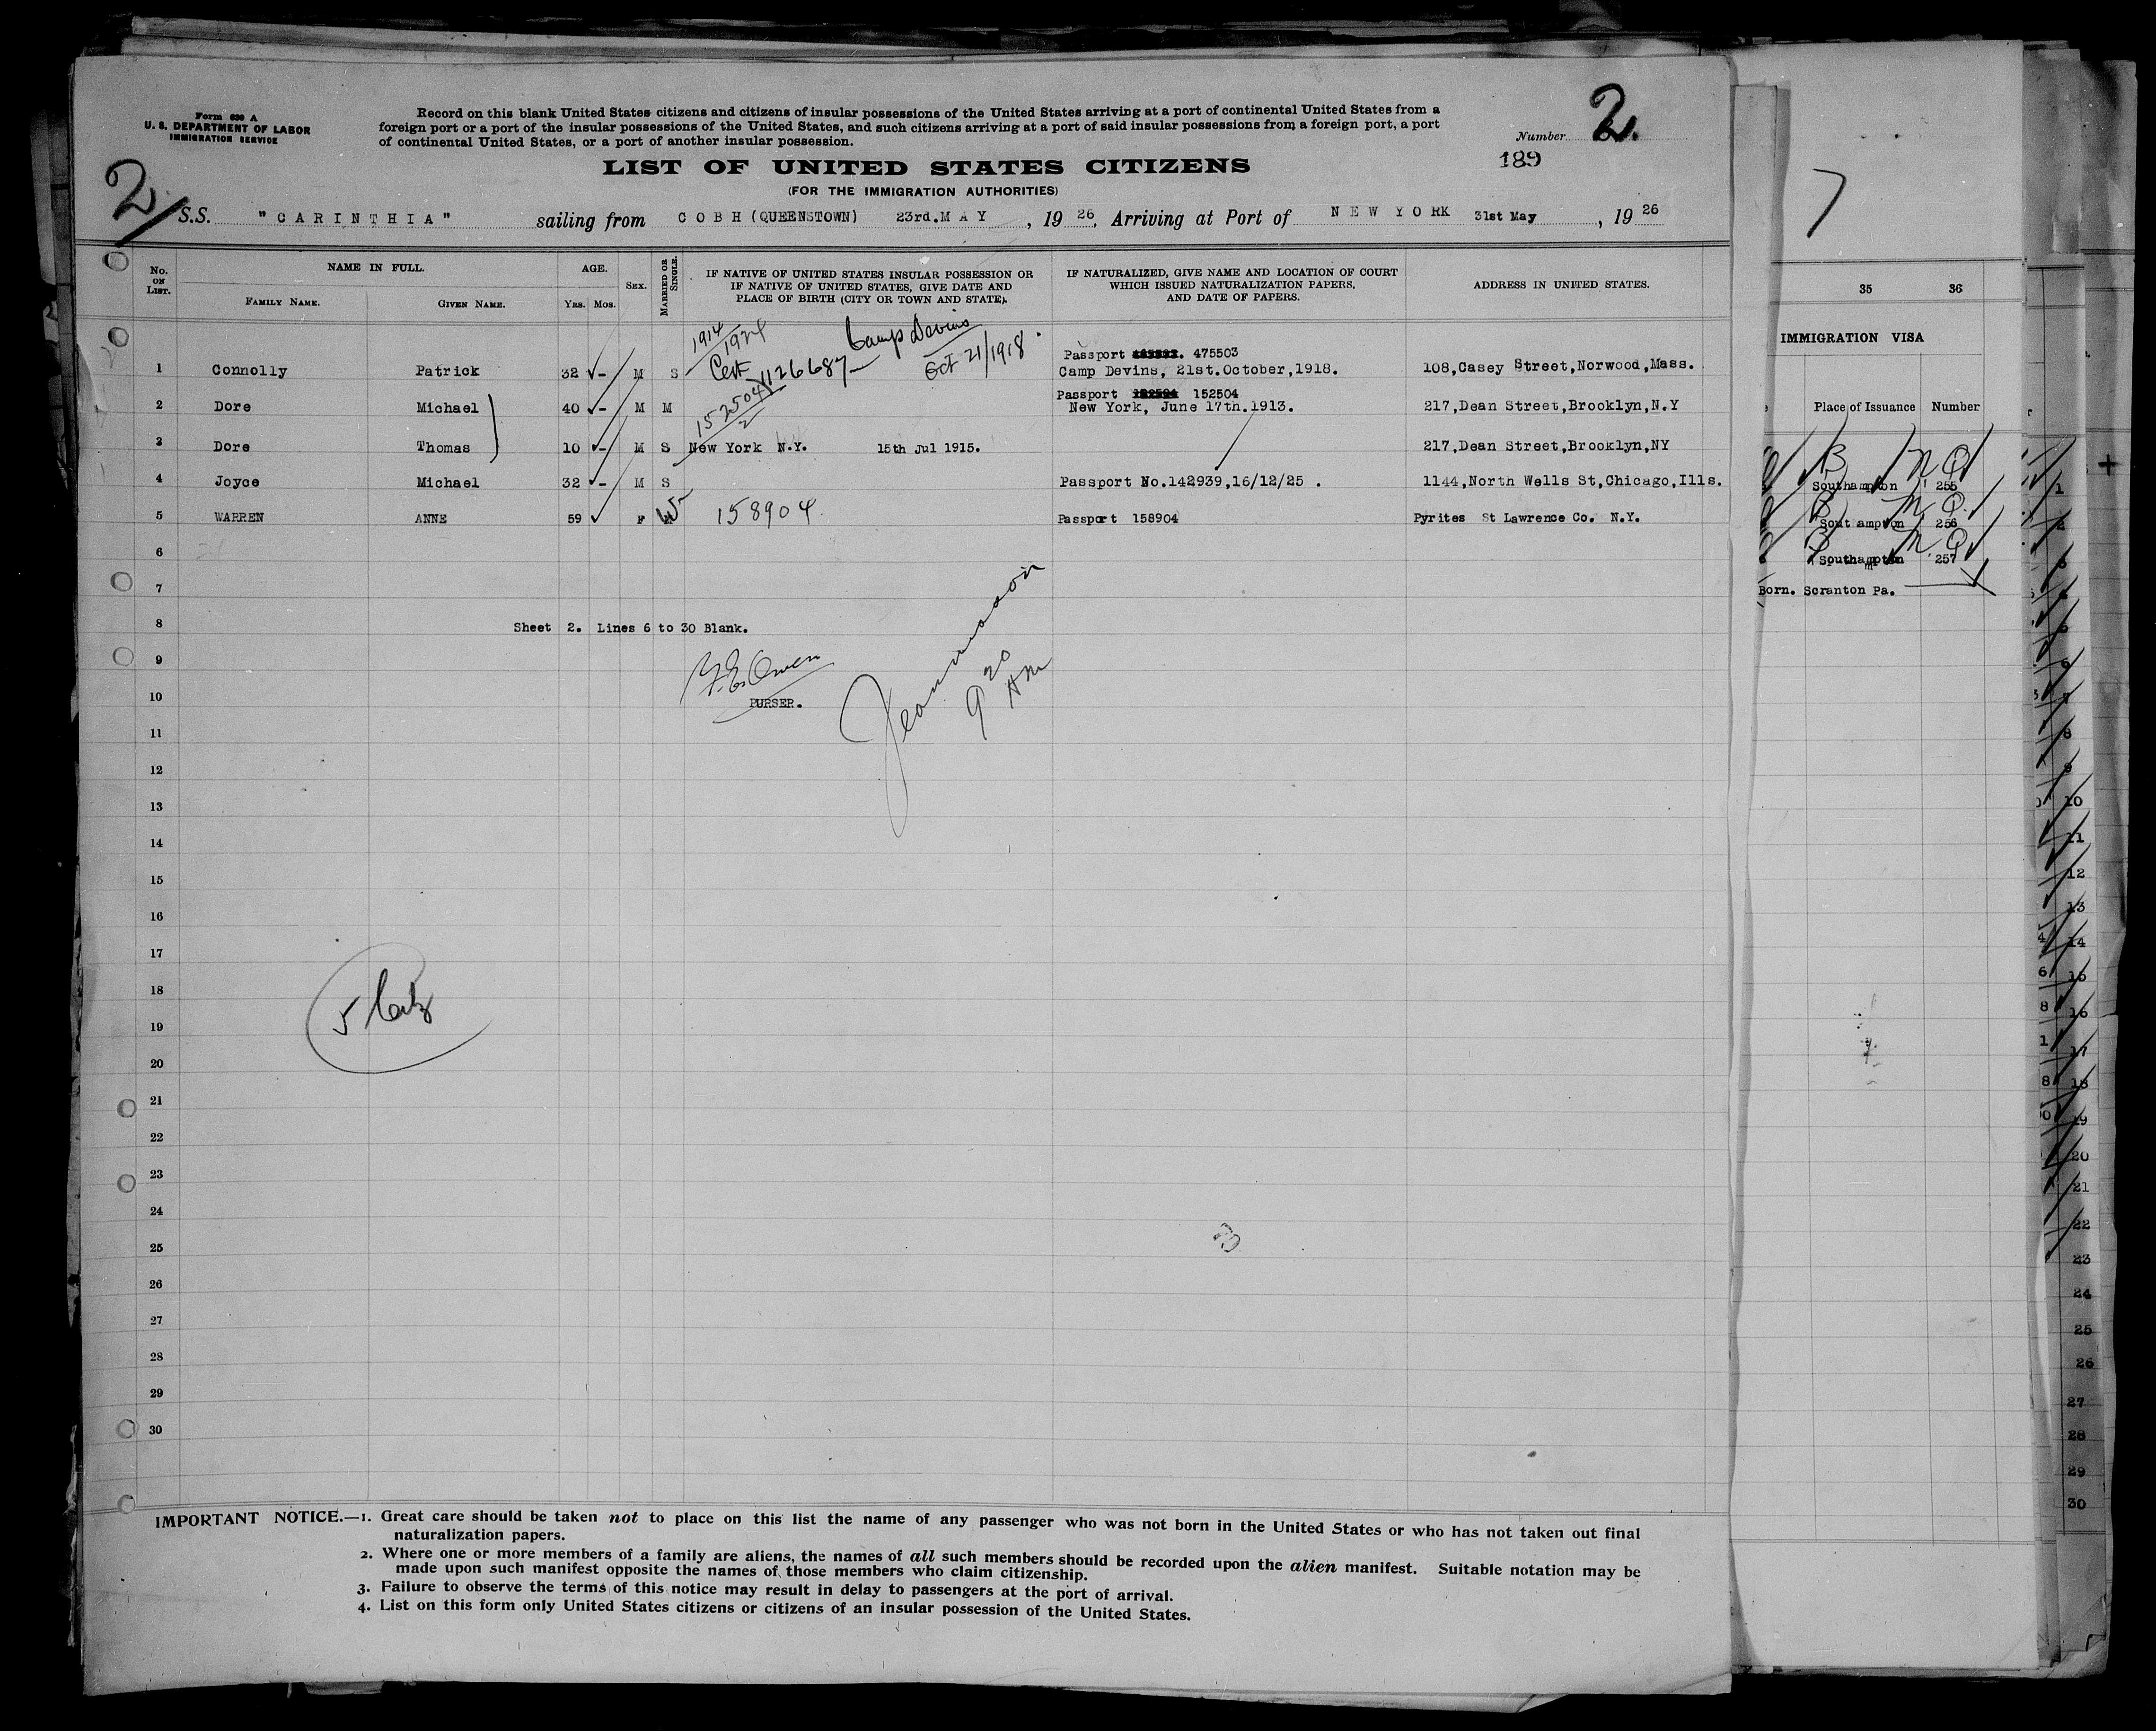 Form 630 A
U. S. DEPARTMENT OF LABOR
IMMIGRATION SERVICE
Record on this blank United States citizens and citizens of insular possessions of the United States arriving at a port of continental United States from a
foreign port or a port of the insular possessions of the United States, and such citizens arriving at a port of said insular possessions from a foreign port, a port
of continental United States, or a port of another insular possession.
Number 2.
189
LIST OF UNITED STATES CITIZENS
(FOR THE IMMIGRATION AUTHORITIES)
2/
S.S. "CARINTHIA" sailing from COBH (QUEENSTOWN) 23rd. MAY, 1926, Arriving at Port of NEW YORK 31st May, 1926
No. ON LIST.
NAME IN FULL.
FAMILY NAME. GIVEN NAME.
AGE.
YRS. MOS.
SEX.
MARRIED OR SINGLE.
IF NATIVE OF UNITED STATES INSULAR POSSESSION OR
IF NATIVE OF UNITED STATES, GIVE DATE AND
PLACE OF BIRTH (CITY OR TOWN AND STATE).
IF NATURALIZED, GIVE NAME AND LOCATION OF COURT
WHICH ISSUED NATURALIZATION PAPERS,
AND DATE OF PAPERS.
ADDRESS IN UNITED STATES.
1914/1924 Camp Devins
Cert 1126687 Oct 21/1918
Passport 475503
1 Connolly Patrick 32 ✓- M S Camp Devins, 21st.October,1918. 108,Casey Street,Norwood,Mass.
Passport 152504
2 Dore Michael 40 ✓- M M 152504/2 New York, June 17th.1913. 217,Dean Street,Brooklyn,N.Y
3 Dore Thomas 10 ✓- M S New York N.Y. 15th Jul 1915. 217,Dean Street,Brooklyn,NY
4 Joyce Michael 32 ✓- M S Passport No.142939,16/12/25 . 1144,North Wells St,Chicago,Ills.
5 WARREN ANNE 59 ✓ F W 158904 Passport 158904 Pyrites St Lawrence Co. N.Y.
6
7
8 Sheet 2. Lines 6 to 30 Blank.
9
10 PURSER.
9 20 AM
11
12
13
14
15
16
17
18
19
20
21
22
23
24
25
26
27
28
29
30
IMPORTANT NOTICE.—1. Great care should be taken not to place on this list the name of any passenger who was not born in the United States or who has not taken out final
naturalization papers.
2. Where one or more members of a family are aliens, the names of all such members should be recorded upon the alien manifest. Suitable notation may be
made upon such manifest opposite the names of those members who claim citizenship.
3. Failure to observe the terms of this notice may result in delay to passengers at the port of arrival.
4. List on this form only United States citizens or citizens of an insular possession of the United States.
35 36
IMMIGRATION VISA
Place of Issuance Number
Southampton 255
Sout ampton 256
Southampton 257
Born. Scranton Pa.